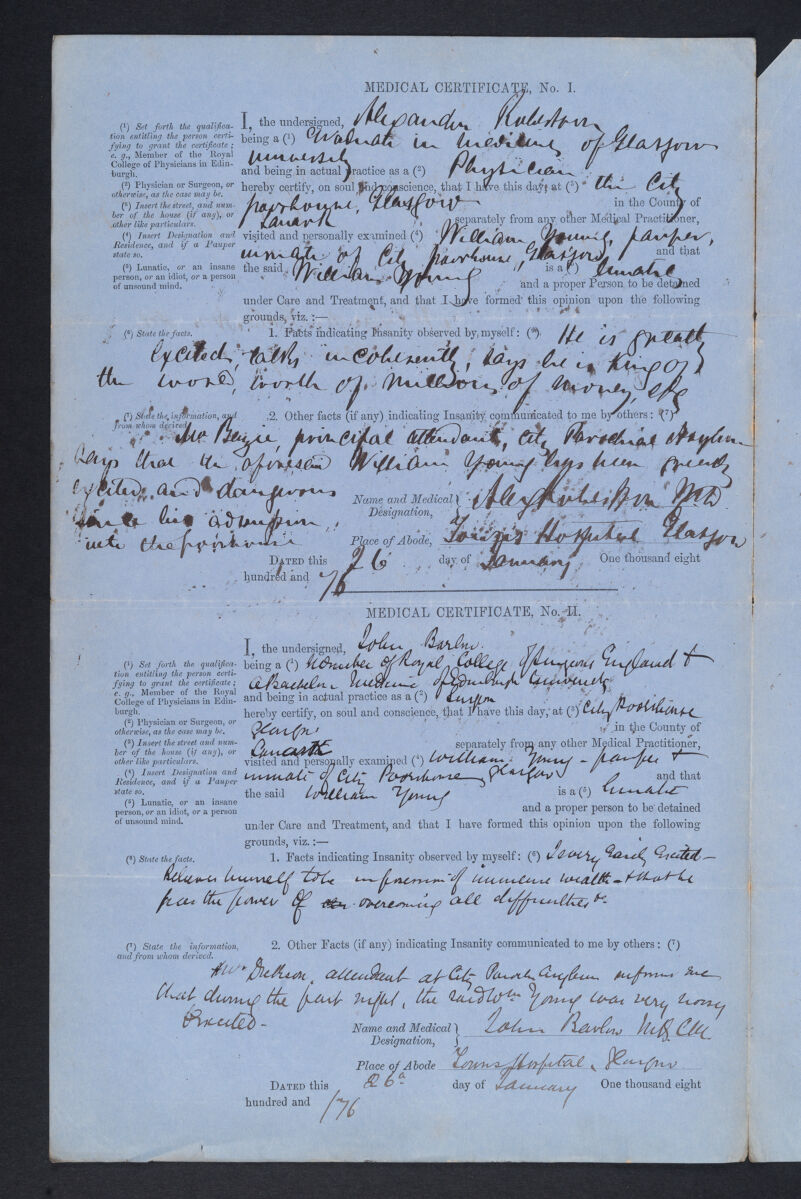 MEDICAL CERTIFICATE, No. I.
(¹) Set forth the qualifica-
tion entitling the person certi-
fying to grant the certificate;
e. g., Member of the Royal
College of Physicians in Edin-
burgh.
(²) Physician or Surgeon, or
otherwise, as the case may be.
(³) Insert the street, and num-
ber of the house (if any), or
other like particulars.
(⁴) Insert Designation and
Residence, and if a Pauper
state so.
(⁵) Lunatic, or an insane
person, or an idiot, or a person
of unsound mind.
I, the undersigned, Alexander Robertson
being a (¹) Graduate in Medicine of Glasgow
University
and being in actual practice as a (²) Physician
hereby certify, on soul and conscience, that I have this day, at (³) the City
poorhouse, Glasgow in the County of
Lanark separately from any other Medical Practitioner,
visited and personally examined (⁴) William Young, pauper,
inmate of City poorhouse, Glasgow and that
the said William Young is a (⁵) Lunatic
and a proper Person to be detained
under Care and Treatment, and that I have formed this opinion upon the following
grounds, viz. :—
(⁶) State the facts.
1. Facts indicating Insanity observed by myself: (⁶) He is greatly
excited, talks incoherently, says he is King of
the world, worth of millions of money, etc
(⁷) State the information, and
from whom derived.
2. Other facts (if any) indicating Insanity communicated to me by others: (⁷)
principal attendant, City Parochial Asylum
says that the aforesaid William Young has been greatly
excited and dangerous
since his admission
into the poorhouse
Name and Medical Designation, Alex Robertson M.D.
Place of Abode, Town's Hospital Glasgow
DATED this 26 day of January One thousand eight
hundred and 76
MEDICAL CERTIFICATE, No. II.
(¹) Set forth the qualifica-
tion entitling the person certi-
fying to grant the certificate;
e. g., Member of the Royal
College of Physicians in Edin-
burgh.
(²) Physician or Surgeon, or
otherwise, as the case may be.
(³) Insert the street and num-
ber of the house (if any), or
other like particulars.
(⁴) Insert Designation and
Residence, and if a Pauper
state so.
(⁵) Lunatic, or an insane
person, or an idiot, or a person
of unsound mind.
I, the undersigned, John Barlow
being a (¹) Member of Royal College of Surgeons England &
a Bachelor Medicine of Edinburgh University
and being in actual practice as a (²) Surgeon
hereby certify, on soul and conscience, that I have this day, at (³) City Poorhouse
Glasgow in the County of
Lanark separately from any other Medical Practitioner,
visited and personally examined (⁴) William Young - pauper &
inmate of City Poorhouse Glasgow and that
the said William Young is a (⁵) Lunatic
and a proper person to be detained
under Care and Treatment, and that I have formed this opinion upon the following
grounds, viz. :—
(⁶) State the facts.
1. Facts indicating Insanity observed by myself: (⁶) Is very easily excited -
Believes himself to be in possession of immense wealth - & that he
has the power of overcoming all difficulties
(⁷) State the information,
and from whom derived.
2. Other Facts (if any) indicating Insanity communicated to me by others: (⁷)
attendant at City Paroch Asylum informs me
that during the past night, the said Wm Young was very noisy
& excited -
Name and Medical Designation, John Barlow M.B. C.M.
Place of Abode Towns Hospital, Glasgow
DATED this 26th day of January One thousand eight
hundred and /76